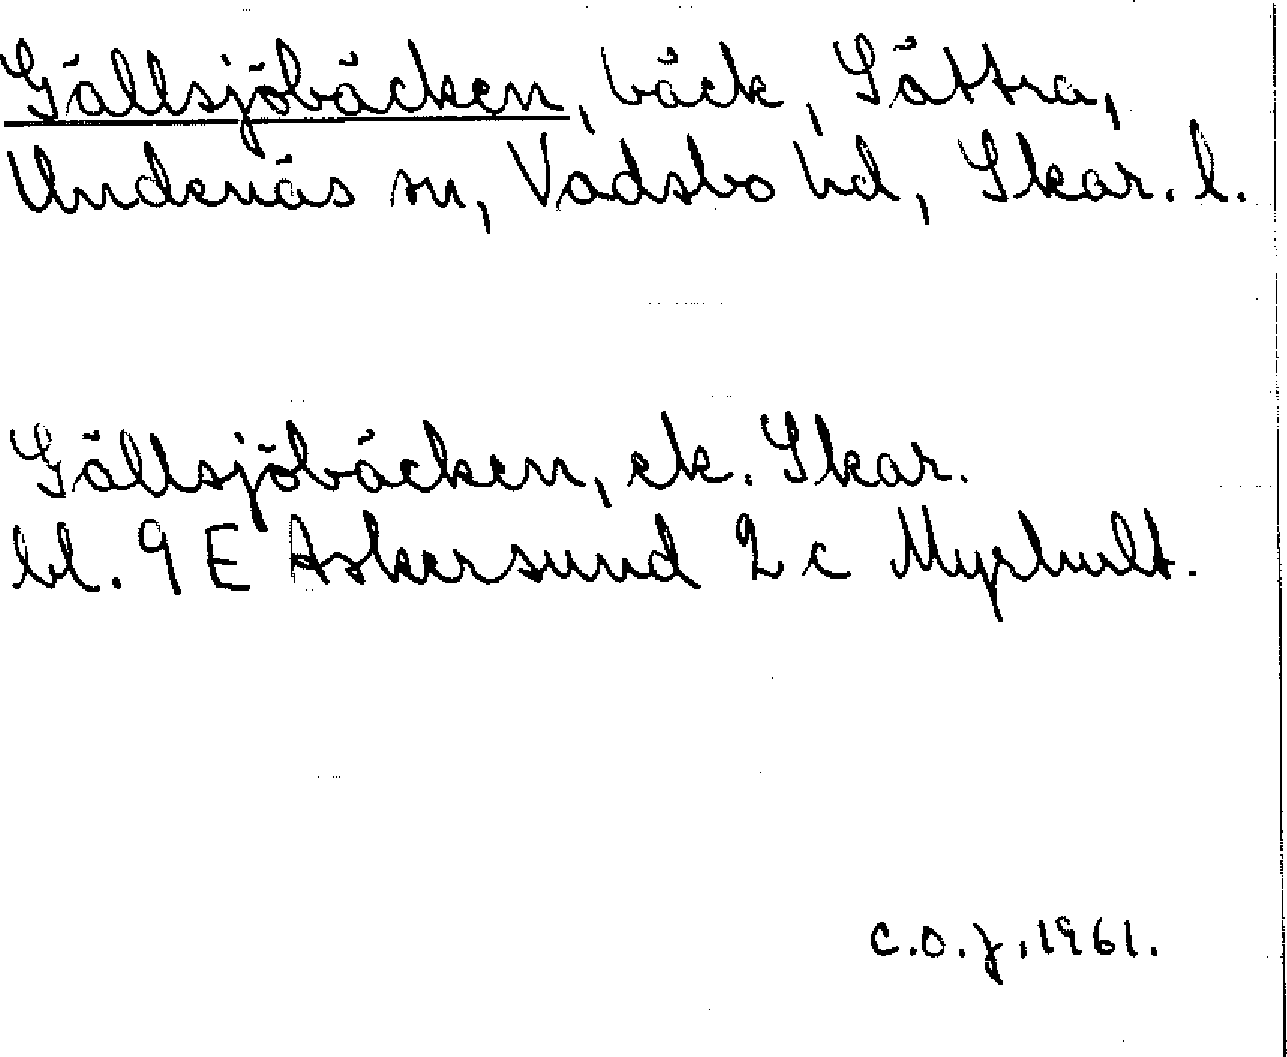 Gällsjöbäcken, bäck, Sättra,
Undenäs sn, Vadsbo hd, Skar. l.
Gällsjöbäcken, ek. Skar.
bl. 9 E Askersund 2 c Myrhult.
C.O.J. 1961.